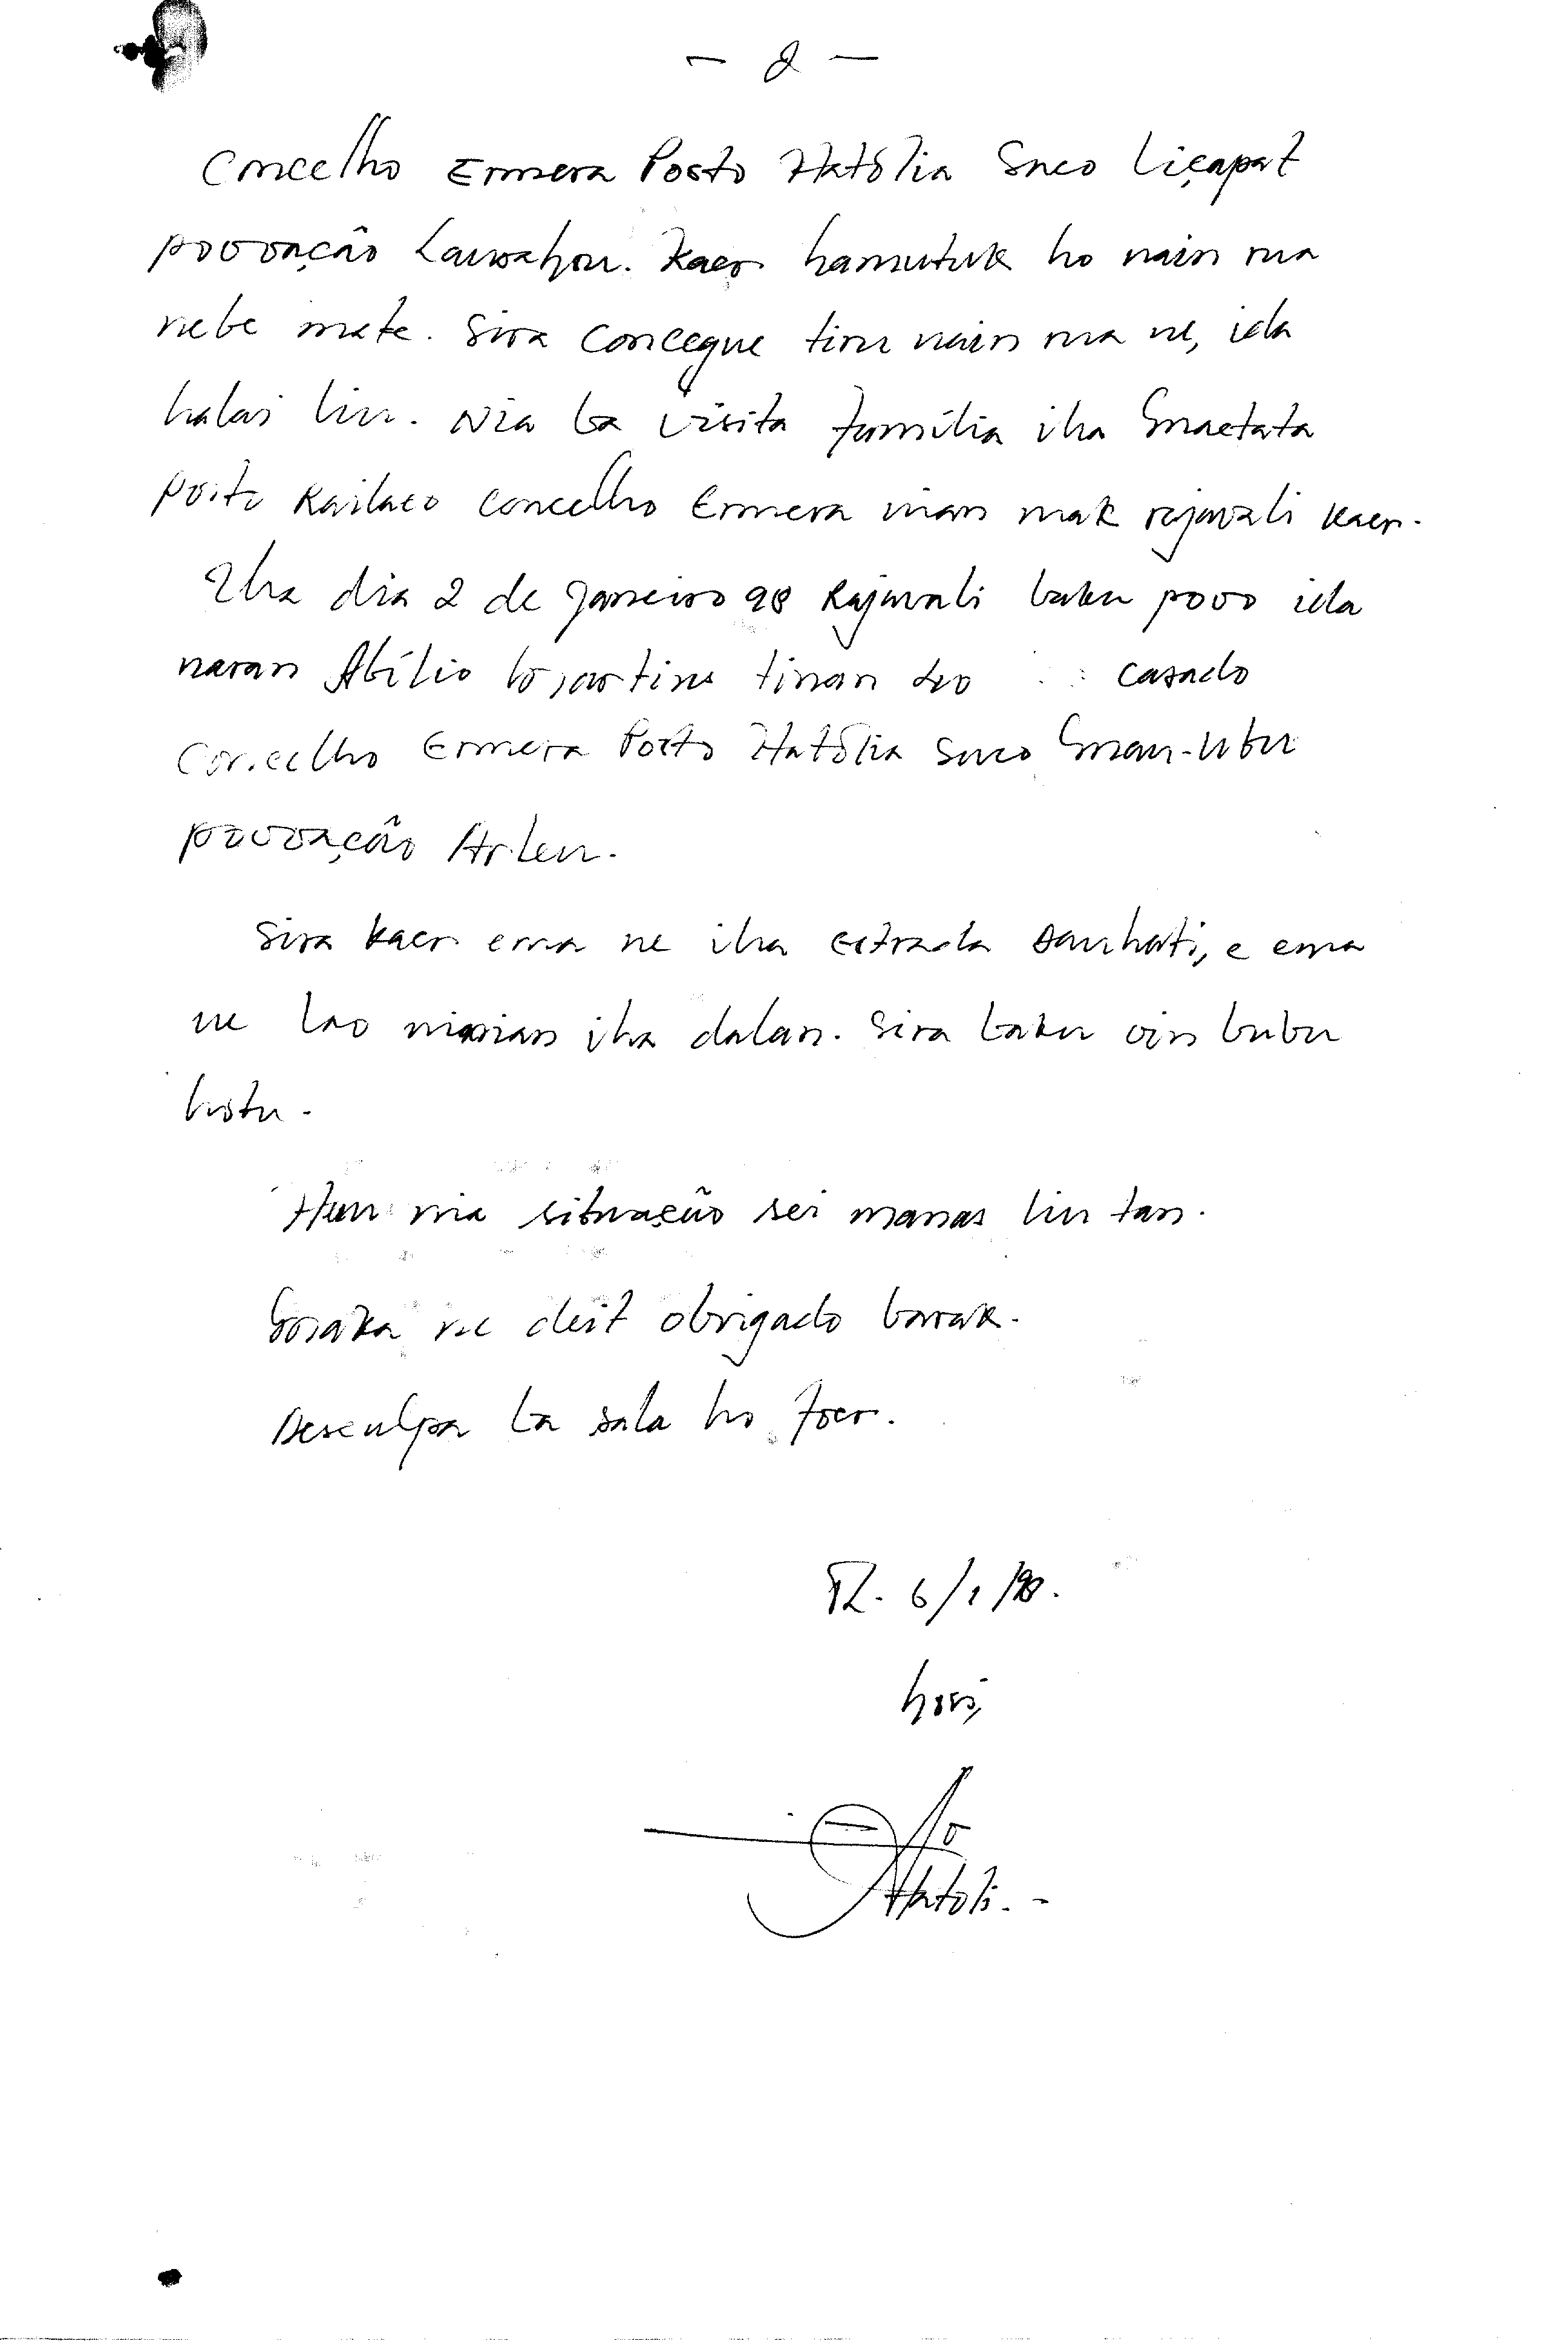 - 2 -
Concelho Ermera Posto Hatólia Suco Liçapat
povoação Lauwahou. Kaer hamutuk ho nain rua
nebe mate. Sira consegue tiru nain rua ne, ida
halai liu. Nia ba visita família iha Gmactata
posto Railaco concelho Ermera mai mak rajawali kaer.
Iha dia 2 de Janeiro 98 Rajawali baku povo ida
naran Abílio tinan casado
Concelho Ermera Posto Hatólia Suco Gmau-Ubu
povoação Ar.leu.
Sira kaer ema ne iha estrada Sauhati, e ema
ne lao mi iha dalan. Sira baku oin bubu
hotu.
Hau nia situação sei manas liu tan.
ne deit obrigado barak.
Desculpa ba sala ho foer.
TL. 6/1/98.
hosi,
Hatoli. -